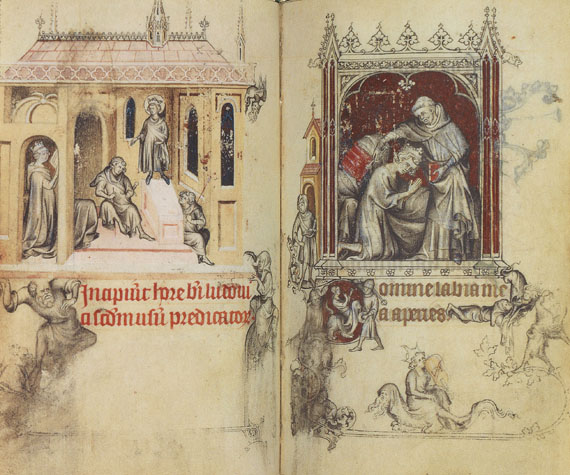 Incipiūt hore bn̄ ludoui
ci scdm̄ usū predicator
Domine labia me
a aperies